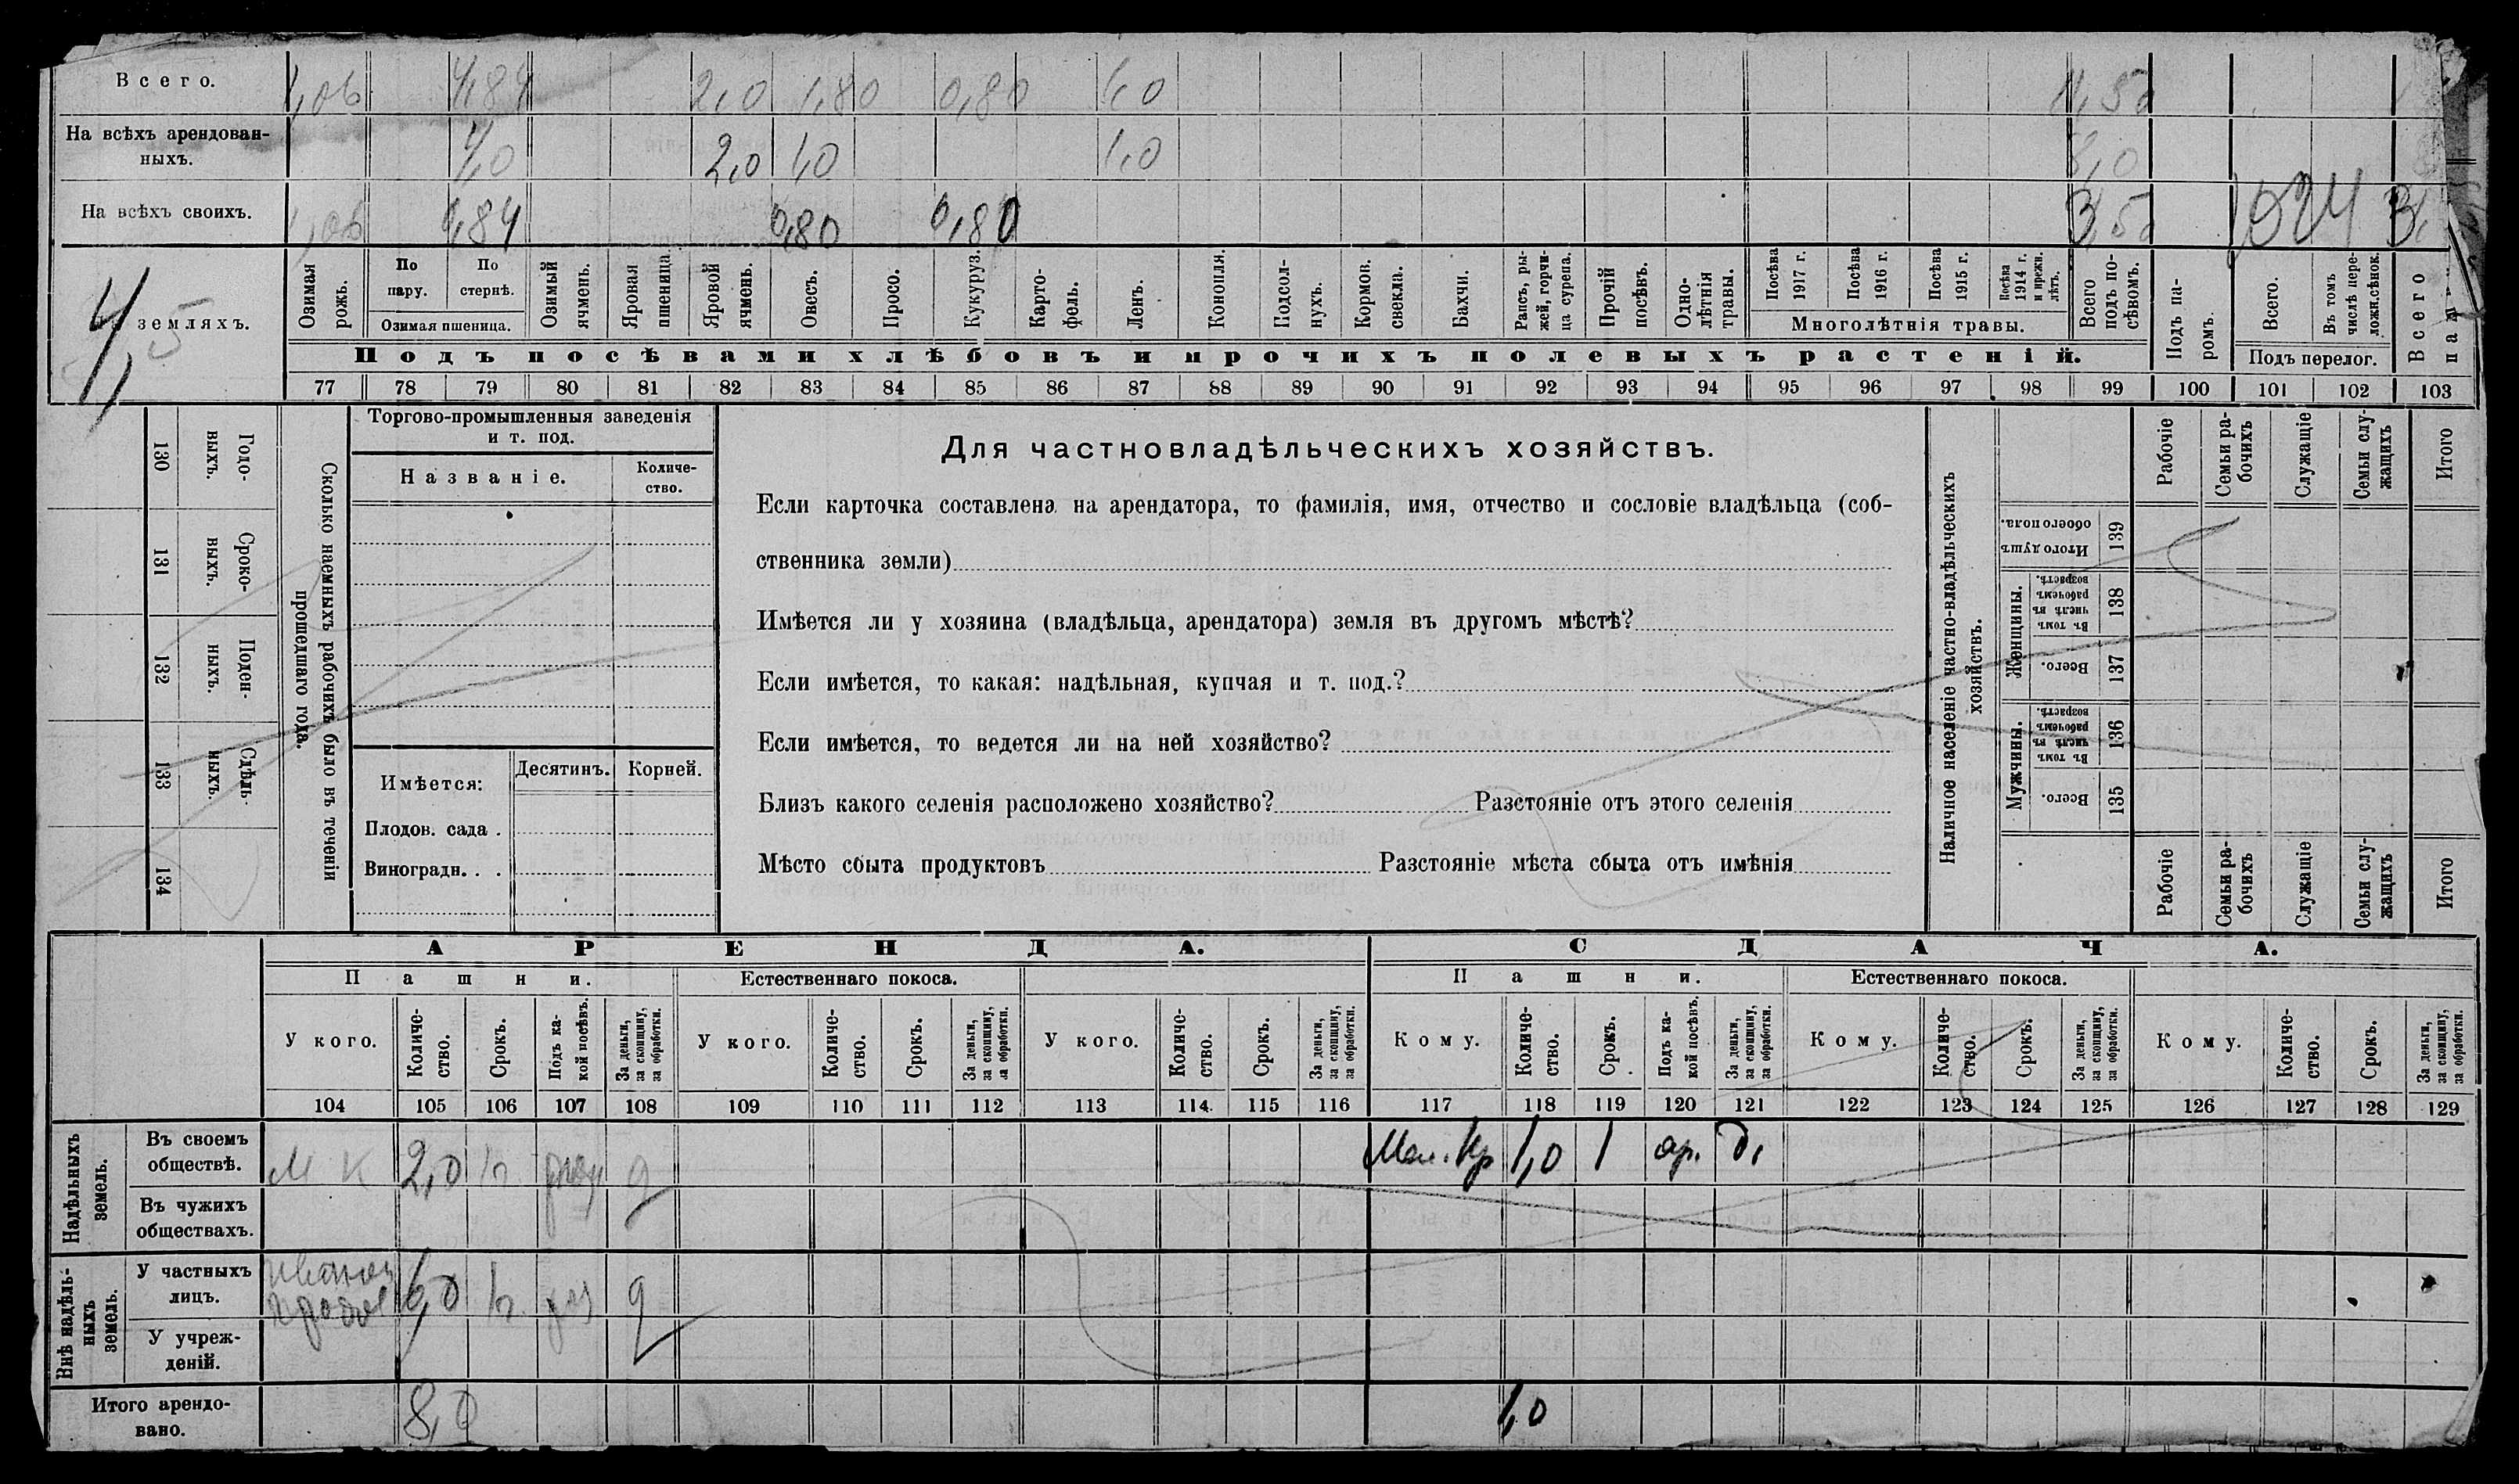 Всего. 1,06 4,84 2,0 1,80 0,80 1,0 11,50
На всѣхъ арендован-
ныхъ. 4,0 2,0 1,0 1,0 8,0
На всѣхъ своихъ. 1,06 0,84 0,80 0,80 3,50
земляхъ.
4,5
Озимая рожь.
По пару.
По стернѣ.
Озимая пшеница.
Озимый ячмень.
Яровая пшеница
Яровой ячмень.
Овесъ.
Просо.
Кукуруз.
Карто-
фель.
Ленъ.
Конопля.
Подсол-
нухъ.
Кормов. свекла.
Бахчи.
Рапсъ, ры-
жей, горчи-
ца сурепа.
Прочій посѣвъ.
Одно-
лѣтнія травы.
Посѣва 1917 г.
Посѣва 1916 г.
Посѣва 1915 г.
Посѣва 1914 г. и прежн. лѣтъ.
Многолѣтнія травы.
Всего подъ по-
сѣвомъ.
Подъ па-
ромъ.
Всего.
Въ томъ числѣ пере-
ложн.сѣнок.
Подъ перелог.
Всего
Подъ посѣвами хлѣбовъ и прочихъ полевыхъ растеній.
77 78 79 80 81 82 83 84 85 86 87 88 89 90 91 92 93 94 95 96 97 98 99 100 101 102 103
130 Годо-
выхъ.
131 Сроко-
выхъ.
132 Поден-
ныхъ.
133 Сдѣль
ныхъ.
134
Сколько наемныхъ рабочихъ было въ теченіи
прошедшаго года.
Торгово-промышленныя заведенія
и т. под.
Названіе.
Количе-
ство.
Имѣется:
Десятинъ.
Корней.
Плодов. сада .
Виноградн. . .
Для частновладѣльческихъ хозяйствъ.
Если карточка составлена на арендатора, то фамилія, имя, отчество и сословіе владѣльца (соб-
ственника земли)
Имѣется ли у хозяина (владѣльца, арендатора) земля въ другомъ мѣстѣ?
Если имѣется, то какая: надѣльная, купчая и т. под.?
Если имѣется, то ведется ли на ней хозяйство?
Близъ какого селенія расположено хозяйство? Разстояніе отъ этого селенія
Мѣсто сбыта продуктовъ Разстояніе мѣста сбыта отъ имѣнія
Наличное населеніе частно-владѣльческихъ
хозяйствъ.
Рабочіе
Семьи ра-
бочихъ
Служащіе
Семьи слу-
жащихъ
Итого
Итого душъ обоего пола. 139
Женщины.
Въ томъ числѣ въ рабочемъ возрастѣ. 138
Всего. 137
Мужчины.
Въ томъ числѣ въ рабочемъ возрастѣ. 136
Всего. 135
Рабочіе
Семьи ра-
бочихъ
Служащіе
Семьи слу-
жащихъ
Итого
АРЕНДА. СДАЧА.
Пашни. Естественнаго покоса. Пашни. Естественнаго покоса.
У кого.
Количе-
ство.
Срокъ.
Подъ ка-
кой посѣвъ.
За деньги,
за скопщину,
за обработки.
У кого.
Количе-
ство.
Срокъ.
За деньги,
за скопщину,
за обработки.
У кого.
Количе-
ство.
Срокъ.
За деньги,
за скопщину,
за обработки.
Кому.
Количе-
ство.
Срокъ.
Подъ ка-
кой посѣвъ.
За деньги,
за скопщину,
за обработки.
Кому.
Количе-
ство.
Срокъ.
За деньги,
за скопщину,
за обработки.
Кому.
Количе-
ство.
Срокъ.
За деньги,
за скопщину,
за обработки.
104 105 106 107 108 109 110 111 112 113 114 115 116 117 118 119 120 121 122 123 124 125 126 127 128 129
Надѣльныхъ
земель.
Въ своемъ
обществѣ. М К 2,0 д 1,0 1 яр. д.
Въ чужихъ
обществахъ.
Внѣ надѣль-
ныхъ
земель.
У частныхъ
лицъ. 6,0 д
У учреж-
деній.
Итого арендо-
вано. 8,0 1,0